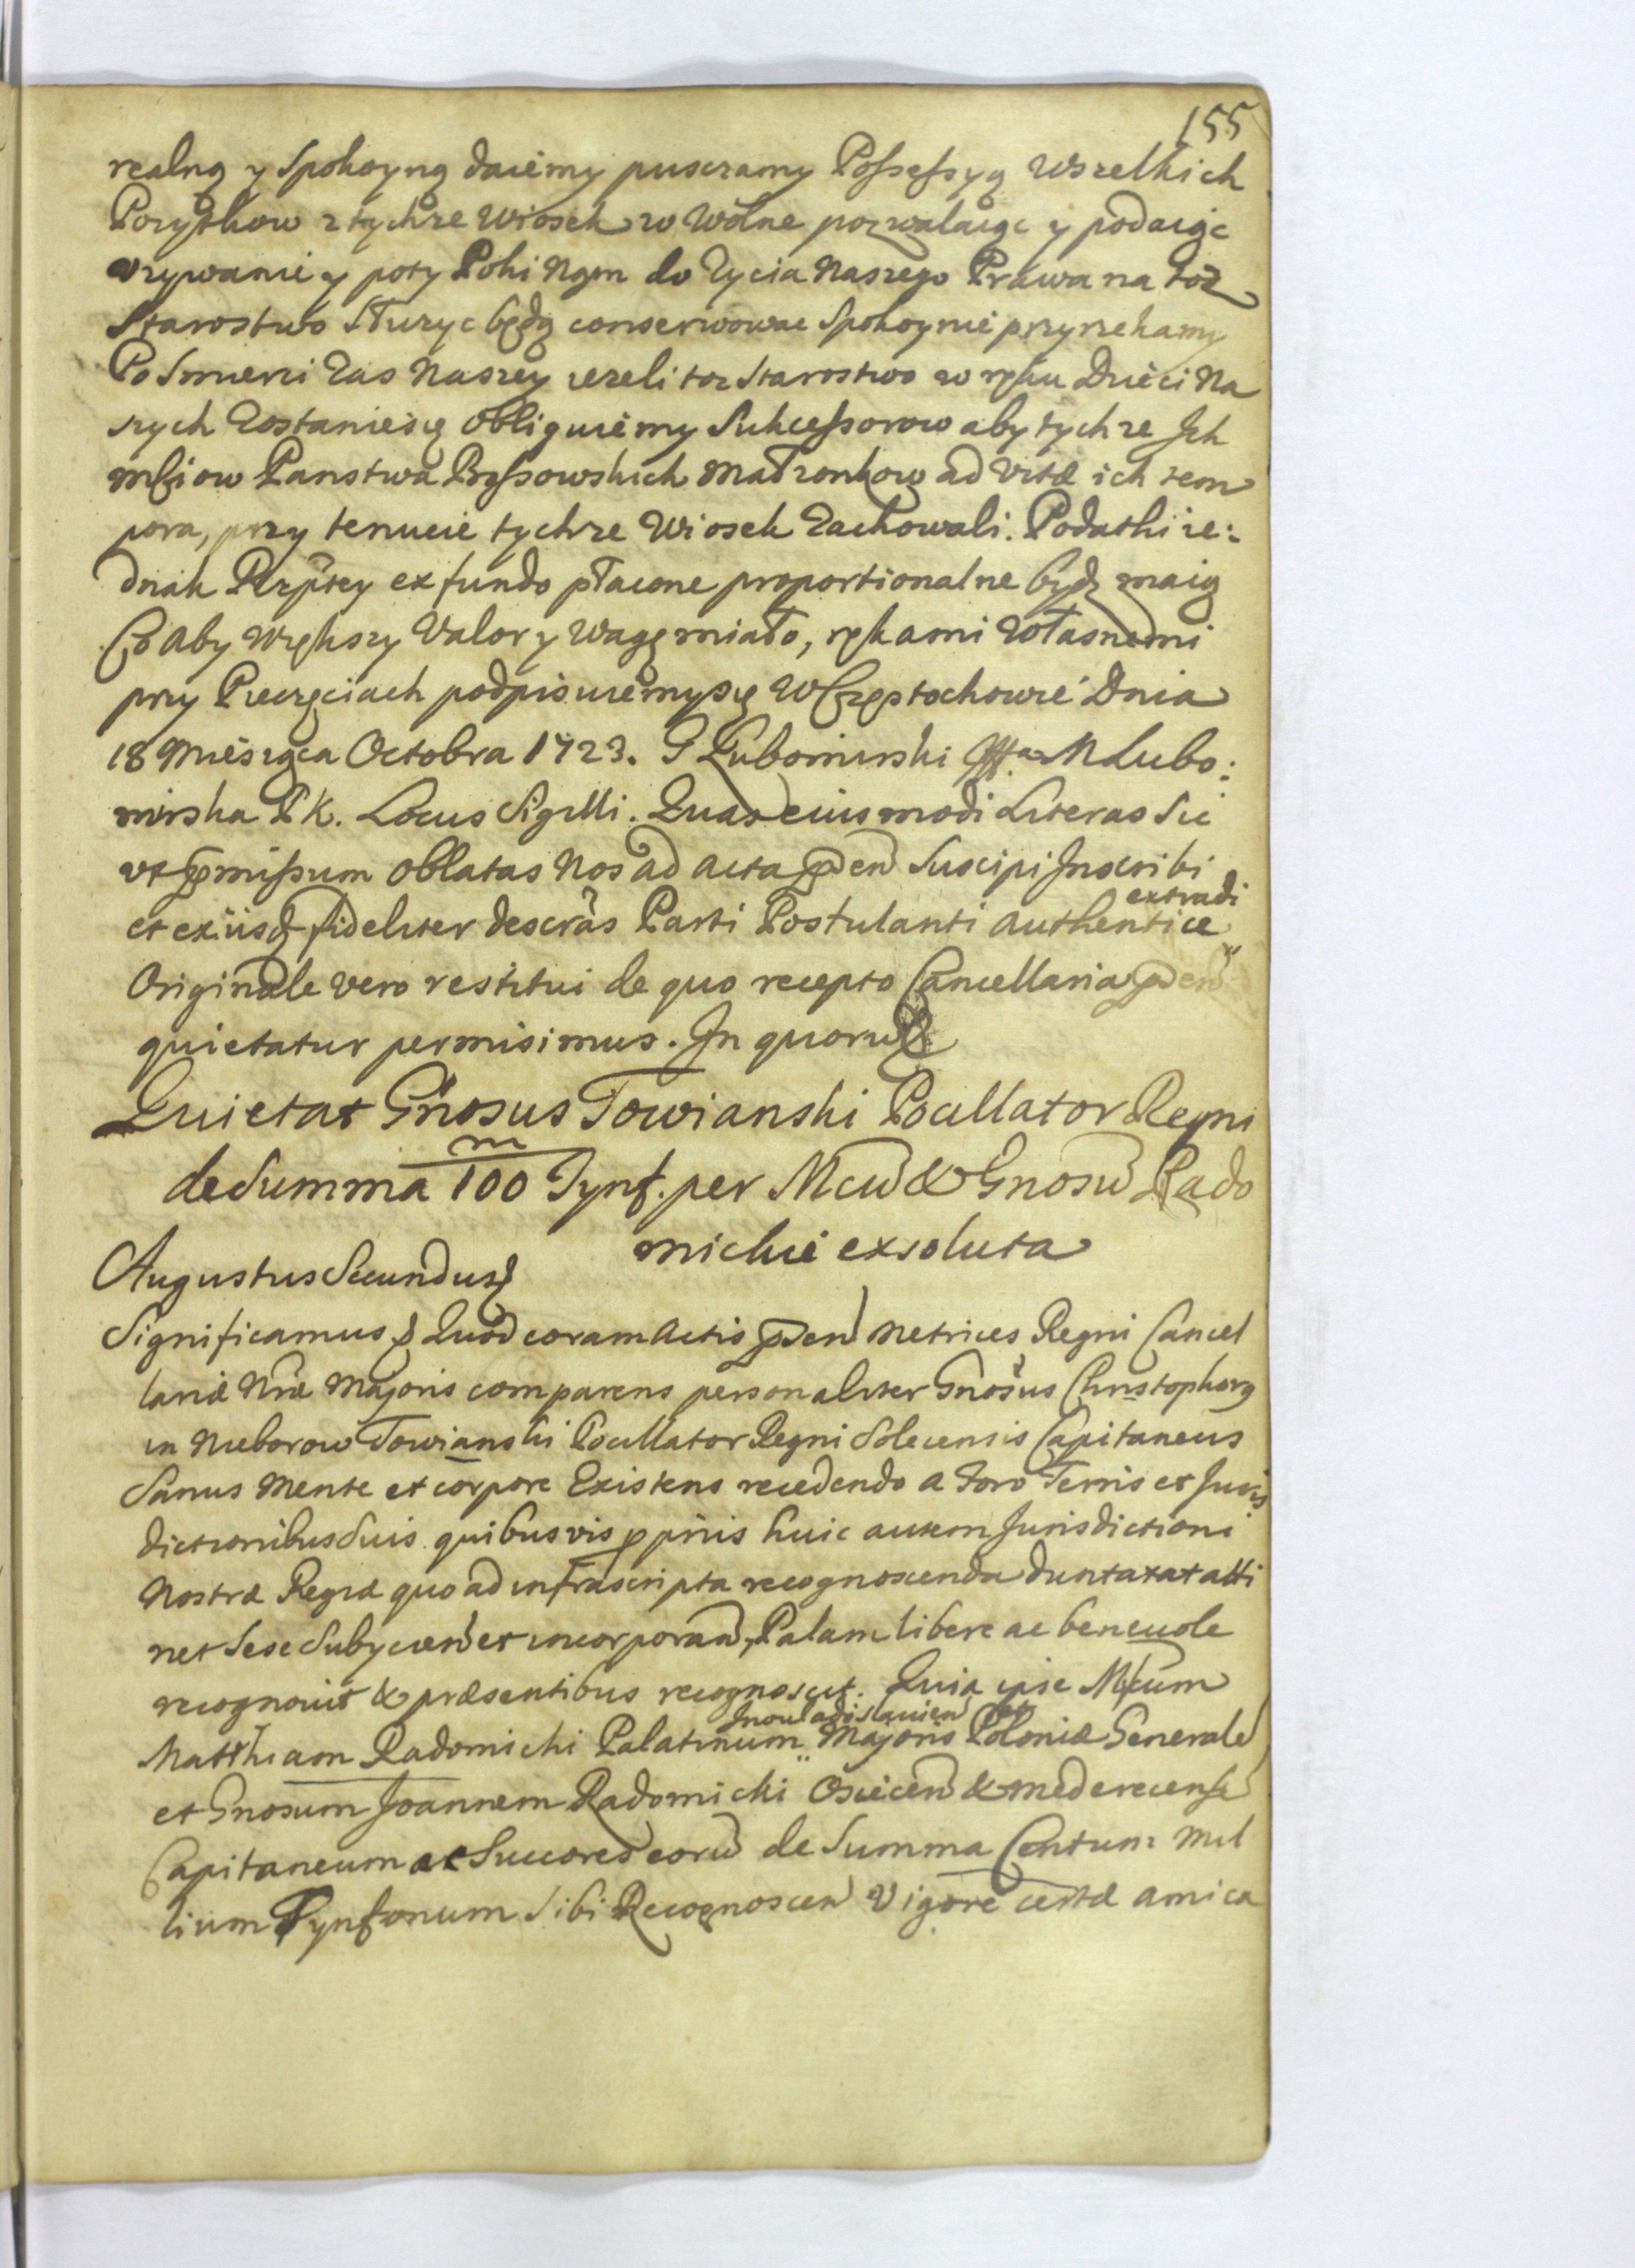 155
realną y Spokoyną daiemy puszczamy Possessyą Wszelkich
Pozytkow z tychze Wiosek w Wolne pozwalaiąc y podaiąc
vzywanie y poty Poki Nąm do Zycia Naszego Prawa na toz
Starostwo Słuzyc będą conserwowac Spokoynie przyrzekamy
Po Smierci Zas Naszey iezeli toz Starostwo w ręku Dzieci Na
szych Zostanie się obliguiemy Sukcessorow aby tychze Ich
Mściow Panstwa Małzonkow ad Vitæ ich tem
pora, przy tenucie tychze Wiosek Zachowali. Podatki ie:
dnak Rzptey ex fundo płacone proportionalne bydz maią
Co aby Większy Valor y Wagę miało, rękami Własnemi
przy Pieczęciach podpisuiemy się W Częstochowie Dnia
18 Miesząca Octobra 1723. J Lubomirski M Lubo:
mirska P K. Locus Sigilli. Quas eiusmodi Literas Sic
vt præmissum oblatas Nos ad acta pñden Suscipi Inscribi
et ex iisdꝫ fideliter descrãs Parti Postulanti authentice extradi
Originale vero restitui de quo recepto Cancellaria pñden
quietatur permisimus. In quorũ &
Quietat Gñosus Towianski Pocillator Regni
de Summa 100 m Tynf. per Mcũ & Gnosũ Rado
mickie exsoluta
Augustus Secundus &
Significamus & Quod coram Actis pñden Metrices Regni Cancel
lariæ Nræ Majoris comparens personaliter Gñosus Christophorꝰ
in Nieborow Towianski Pocillator Regni Solecensis Capitaneus
Sanus Mente et corpore Existens recedendo a Foro Terris et Juris
dictionibus Suis quibusvis ꝓpriis huic autem Jurisdictioni
Nostræ Regiæ quo ad infrascripta recognoscenda duntaxat atti
net Sese Subycien et incorporan, Palam libere ac beneuole
recognouit & præsentibus recognoscit. Quia ipse Mfcum
Matthiam Radomicki Palatinum Inouladislauien et Majoris Poloniæ Generale
et Gnosum Joannem Radomicki Osiecen & Mederecense
Capitaneum ac Succores eorũ de Summa Centum Mil
lium Tynfonum Sibi Recognoscen Vigore certæ amica